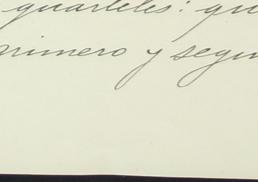 quarteles: qu
primero y segun